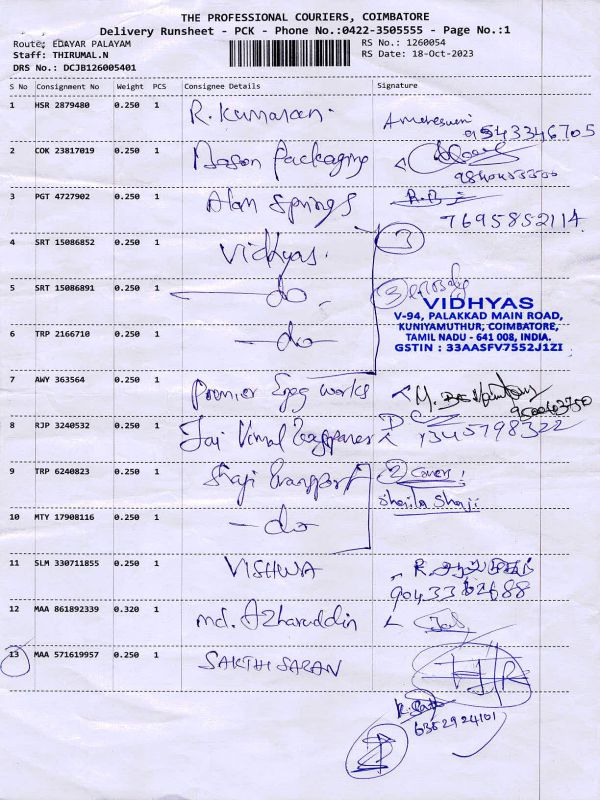 THE PROFESSIONAL COURIERS, COIMBATORE
Delivery Runsheet - PCK - Phone No.:0422-3505555 - Page No.:1
Route: EDAYAR PALAYAM
RS No.: 1260054
Staff: THIRUMAL.N
RS Date: 18-Oct-2023
DRS No.: DCJB126005401
S No Consignment No Weight PCS Consignee Details Signature
1 HSR 2879480 0.250 1 R. Kumaran.
2 COK 23817019 0.250 1 Mason Packaging
3 PGT 4727902 0.250 1 Alan Springs
7695852114
4 SRT 15086852 0.250 1 Vidhyas. 3
5 SRT 15086891 0.250 1 -do-
VIDHYAS
V-94, PALAKKAD MAIN ROAD,
KUNIYAMUTHUR, COIMBATORE,
TAMIL NADU - 641 008, INDIA.
GSTIN : 33AASFV7552J1ZI
6 TRP 2166710 0.250 1 -do-
7 AWY 363564 0.250 1 Premier Engg Works
8 RJP 3240532 0.250 1 Jai Vimal
9 TRP 6240823 0.250 1 Shaji Transport 2 Covers
Sheila Shaji
10 MTY 17908116 0.250 1 -do-
11 SLM 330711855 0.250 1 VISHWA
12 MAA 861892339 0.320 1 md. Azharuddin
13 MAA 571619957 0.250 1 SAKTHI SARAN
6352924101